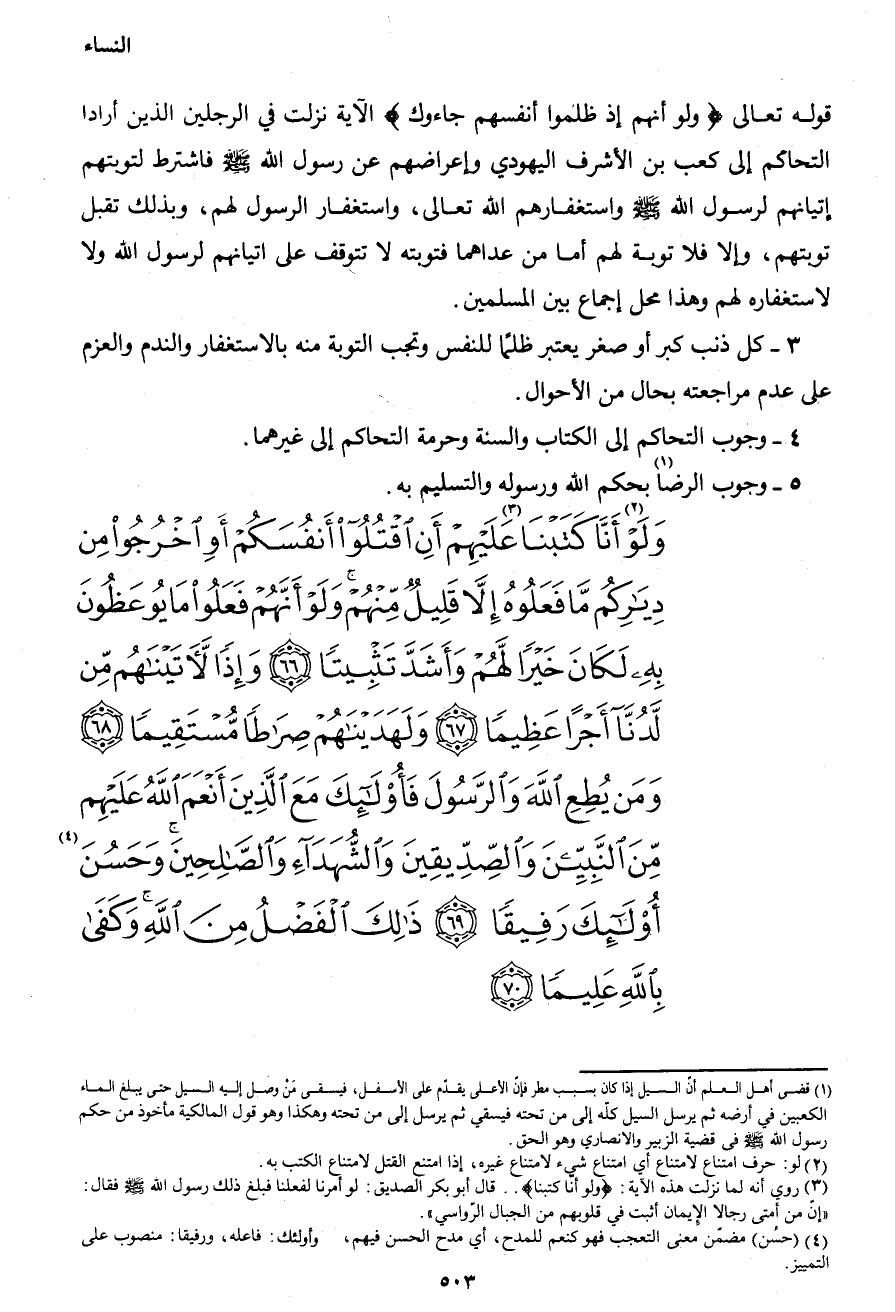 النساء
قوله تعالى ﴿ ولو أنهم إذ ظلموا أنفسهم جاءوك ﴾ الآية نزلت في الرجلين الذين أرادا
التحاكم إلى كعب بن الأشرف اليهودي وإعراضهم عن رسول الله ﷺ فاشترط لتوبتهم
إتيانهم لرسول الله ﷺ واستغفارهم الله تعالى، واستغفار الرسول لهم، وبذلك تقبل
توبتهم، وإلا فلا توبة لهم أما من عداهما فتوبته لا تتوقف على اتيانهم لرسول الله ولا
لاستغفاره لهم وهذا محل إجماع بين المسلمين.
٣ - كل ذنب كبر أو صغر يعتبر ظلمًا للنفس وتجب التوبة منه بالاستغفار والندم والعزم
على عدم مراجعته بحال من الأحوال.
٤ - وجوب التحاكم إلى الكتاب والسنة وحرمة التحاكم إلى غيرهما.
٥ - وجوب الرضا(١) بحكم الله ورسوله والتسليم به.
وَلَوْ(٢) أَنَّا كَتَبْنَا(٣) عَلَيْهِمْ أَنِ ٱقْتُلُوٓا۟ أَنفُسَكُمْ أَوِ ٱخْرُجُوا۟ مِن
دِيَٰرِكُم مَّا فَعَلُوهُ إِلَّا قَلِيلٌ مِّنْهُمْ ۖ وَلَوْ أَنَّهُمْ فَعَلُوا۟ مَا يُوعَظُونَ
بِهِۦ لَكَانَ خَيْرًا لَّهُمْ وَأَشَدَّ تَثْبِيتًا ﴿٦٦﴾ وَإِذًا لَّـَٔاتَيْنَٰهُم مِّن
لَّدُنَّآ أَجْرًا عَظِيمًا ﴿٦٧﴾ وَلَهَدَيْنَٰهُمْ صِرَٰطًا مُّسْتَقِيمًا ﴿٦٨﴾
وَمَن يُطِعِ ٱللَّهَ وَٱلرَّسُولَ فَأُو۟لَٰٓئِكَ مَعَ ٱلَّذِينَ أَنْعَمَ ٱللَّهُ عَلَيْهِم
مِّنَ ٱلنَّبِيِّـۧنَ وَٱلصِّدِّيقِينَ وَٱلشُّهَدَآءِ وَٱلصَّٰلِحِينَ ۚ وَحَسُنَ(٤)
أُو۟لَٰٓئِكَ رَفِيقًا ﴿٦٩﴾ ذَٰلِكَ ٱلْفَضْلُ مِنَ ٱللَّهِ ۚ وَكَفَىٰ
بِٱللَّهِ عَلِيمًا ﴿٧٠﴾
(١) قضى أهل العلم أنّ السيل إذا كان بسبب مطر فإنّ الأعلى يقدّم على الأسفل، فيسقى مَنْ وصل إليه السيل حتى يبلغ الماء
الكعبين في أرضه ثم يرسل السيل كلّه إلى من تحته فيسقي ثم يرسل إلى من تحته وهكذا وهو قول المالكية مأخوذ من حكم
رسول الله ﷺ فى قضية الزبير والانصاري وهو الحق.
(٢) لو: حرف امتناع لامتناع أي امتناع شيء لامتناع غيره، إذا امتنع القتل لامتناع الكتب به.
(٣) روي أنه لما نزلت هذه الآية: ﴿ولو أنا كتبنا﴾.. قال أبو بكر الصديق: لو أمرنا لفعلنا فبلغ ذلك رسول الله ﷺ فقال:
«إنّ من أمتى رجالا الإيمان أثبت في قلوبهم من الجبال الرّواسي».
(٤) (حسُن) مضمّن معنى التعجب فهو كنعم للمدح، أي مدح الحسن فيهم، وأولئك: فاعله، ورفيقا: منصوب على
التمييز.
٥٠٣